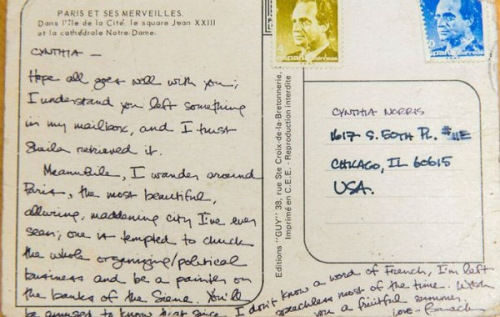 PARIS ET SES MERVEILLES
Dans l'Île de la Cité, le square Jean XXIII
et la cathédrale Notre-Dame.
CYNTHIA —
Hope all goes well with you;
I understand you left something
in my mailbox, and I trust
retrieved it.
Meanwhile, I wander around
Paris, the most beautiful,
alluring, maddening city I've ever
seen; one is tempted to chuck
the whole organizing/political
business and be a painter on
the banks of the Siene. You'll
be amused to know that since I don't know a word of French, I'm left
speechless most of the time. Wish
you a fruitful summer,
love - Barack
Editions "GUY" 38, rue Ste Croix-de-la-Bretonnerie,
Imprimé en C.E.E. - Reproduction interdite
CYNTHIA NORRIS
1617 S. 50TH PL. #11E
CHICAGO, IL 60615
USA.